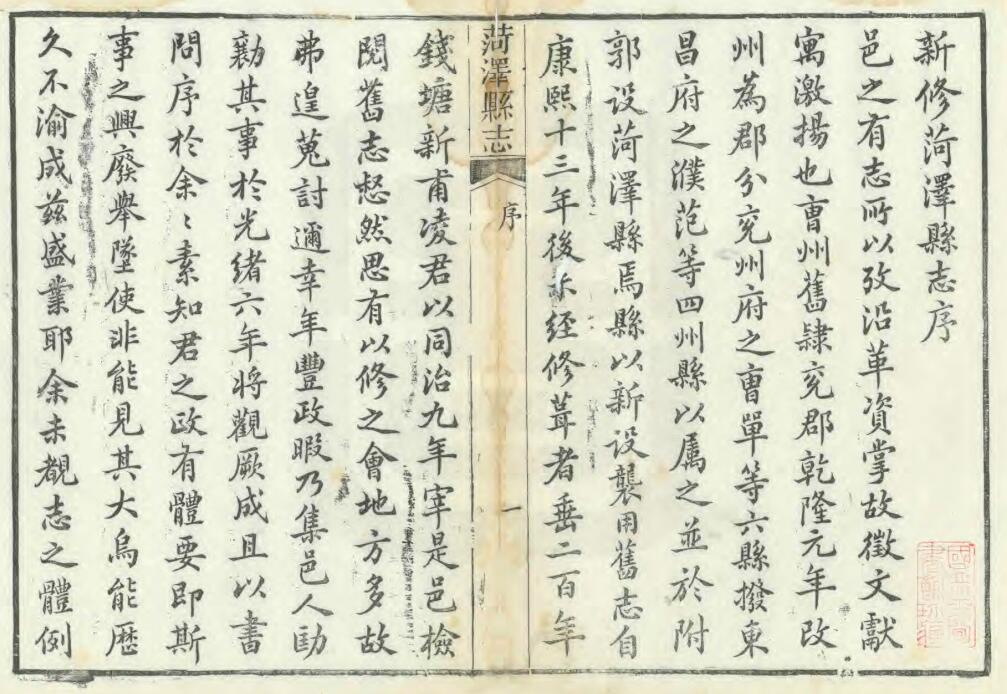 新修菏澤縣志序
邑之有志所以攷沿革資掌故徵文獻
寓激揚也曹州舊隸兗郡乾隆元年改
州為郡分兗州府之曹單等六縣撥東
昌府之濮范等四州縣以屬之並於附
郭設菏澤縣焉縣以新設襲用舊志自
康熙十三年後未經修葺者垂二百年
菏澤縣志
序
一
錢塘新甫凌君以同治九年宰是邑檢
閱舊志惄然思有以修之會地方多故
弗遑蒐討邇幸年豐政暇乃集邑人勛
勷其事於光緒六年將觀厥成且以書
問序於余〻素知君之政有體要即斯
事之興廢舉墜使非能見其大烏能歷
久不渝成茲盛業耶余未覩志之體例